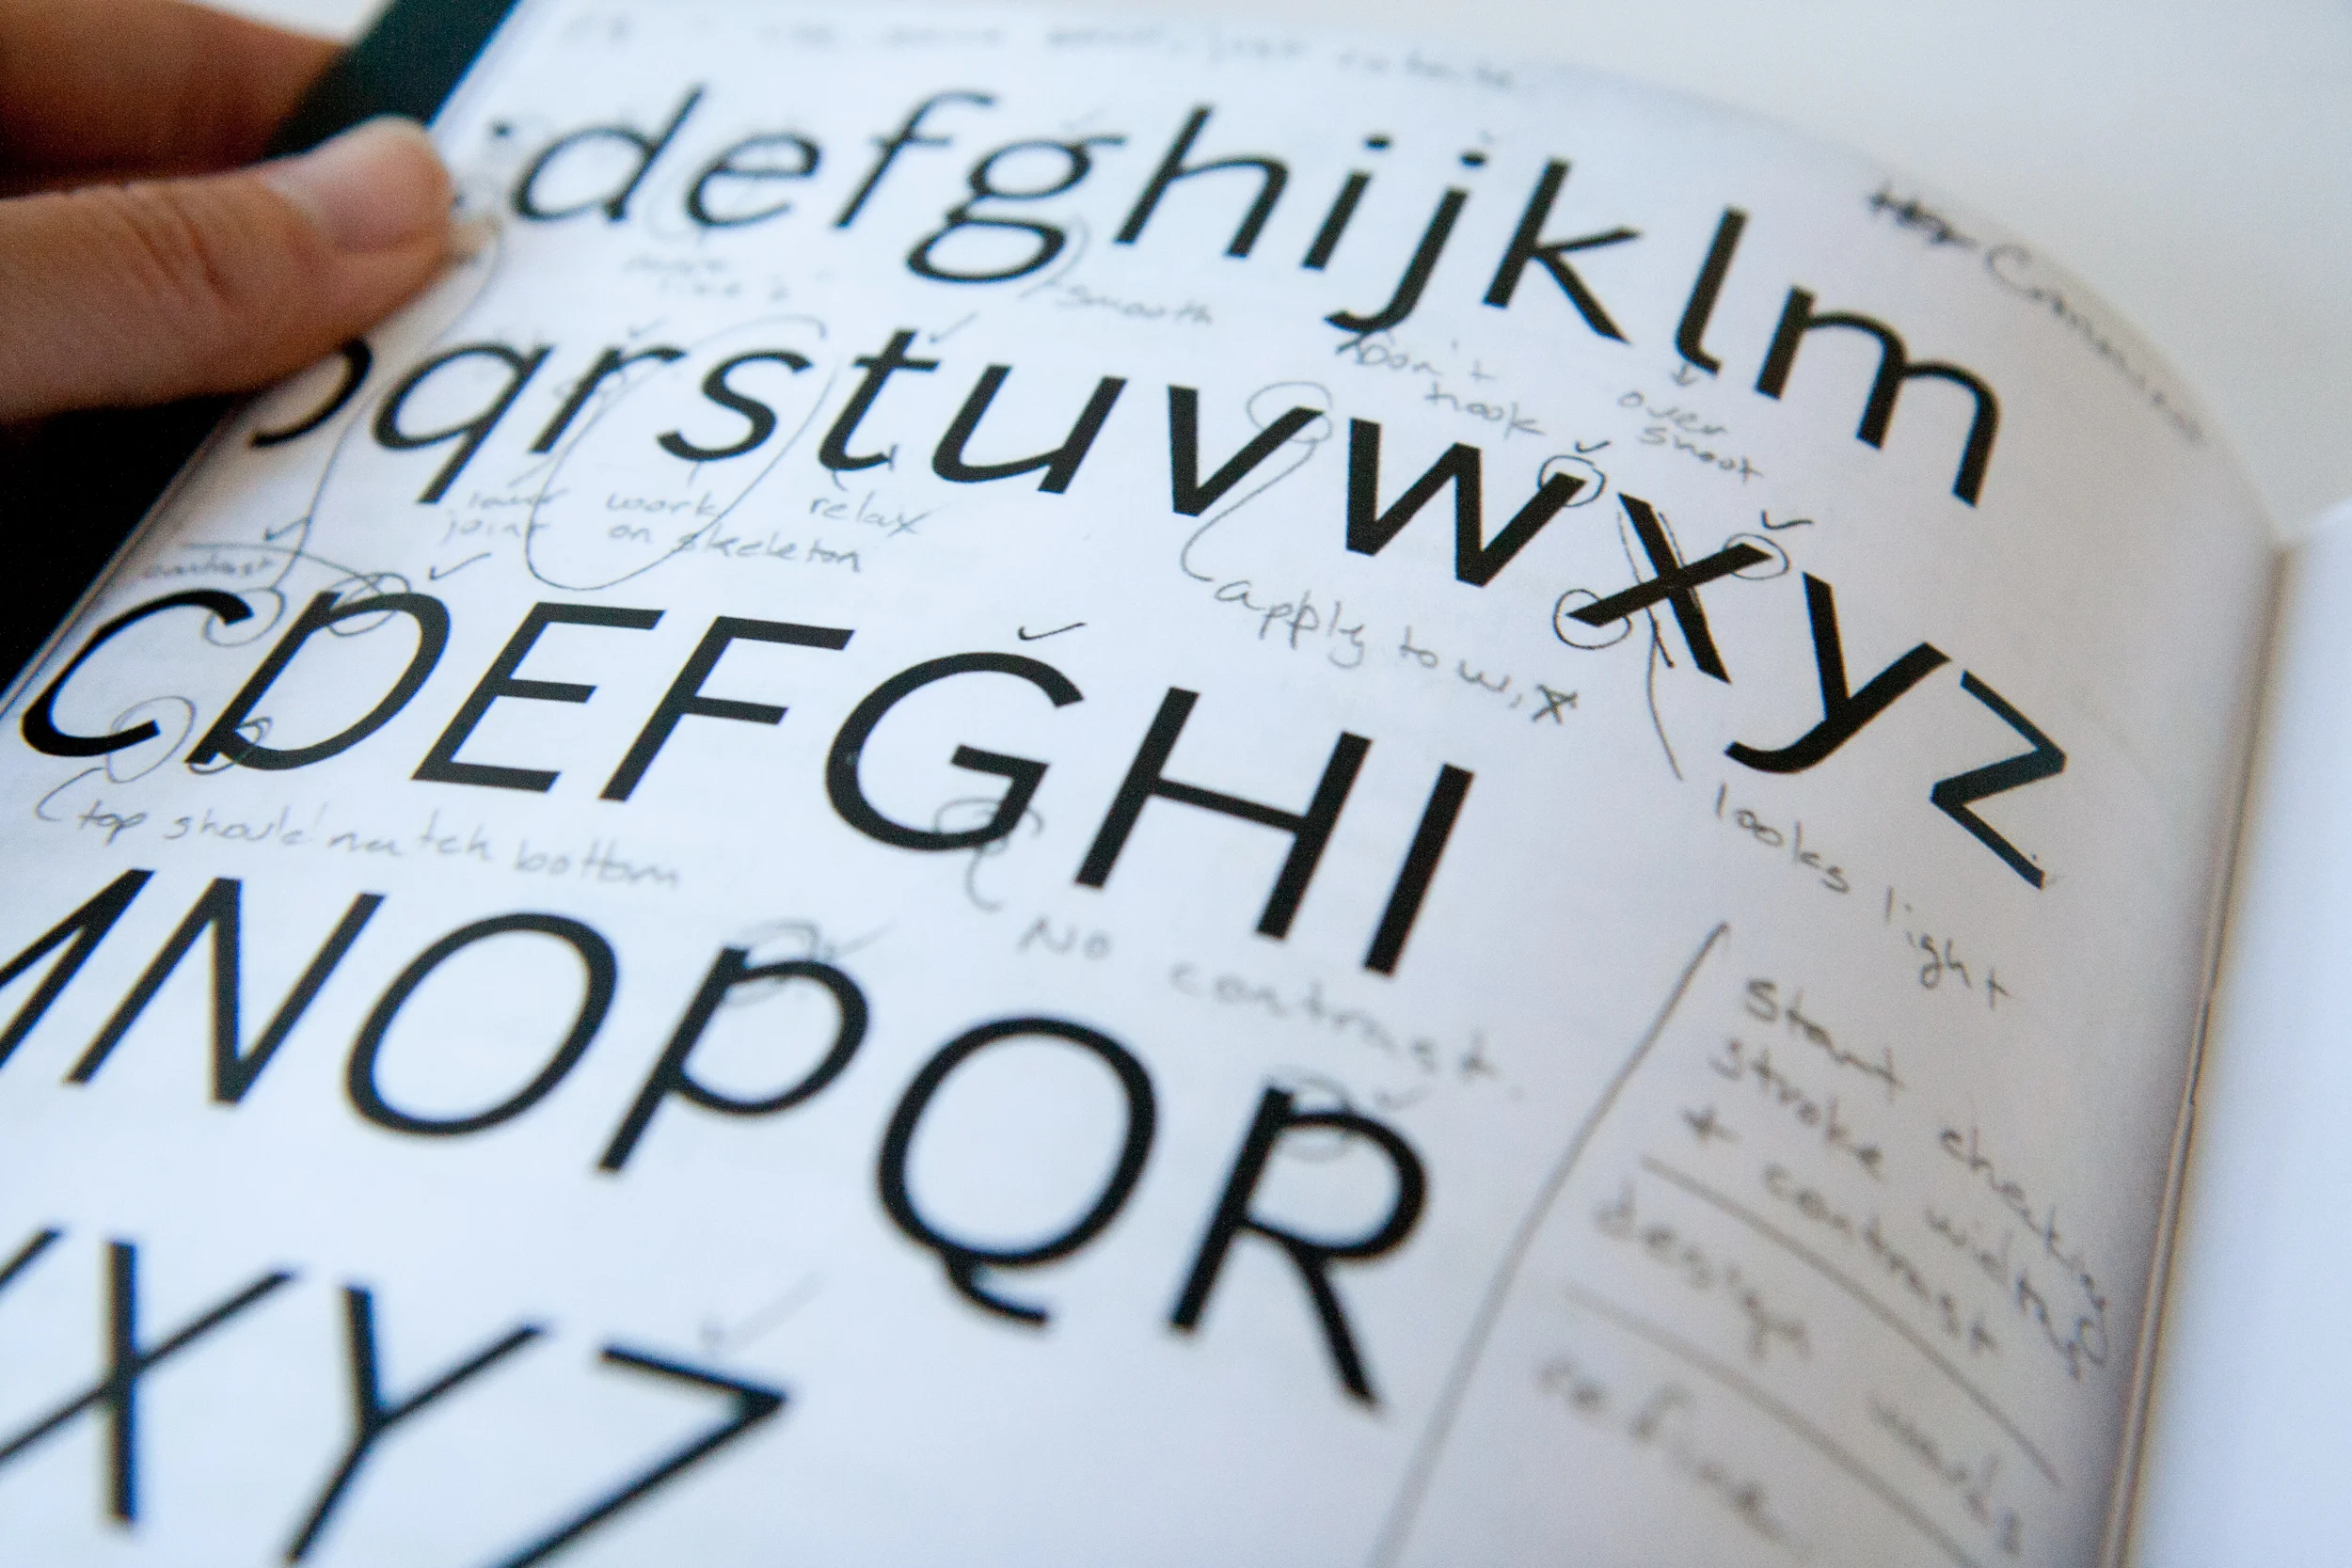 defghijklm
smooth
don't
hook
over
shoot
qrstuvwxyz
lower
joint
work
on skeleton
relax
apply to w, x
looks light
contrast
CDEFGHI
top should match bottom
No contrast.
NOPQR
Start checking
stroke widths
+ contrast
design works
refine
XYZ